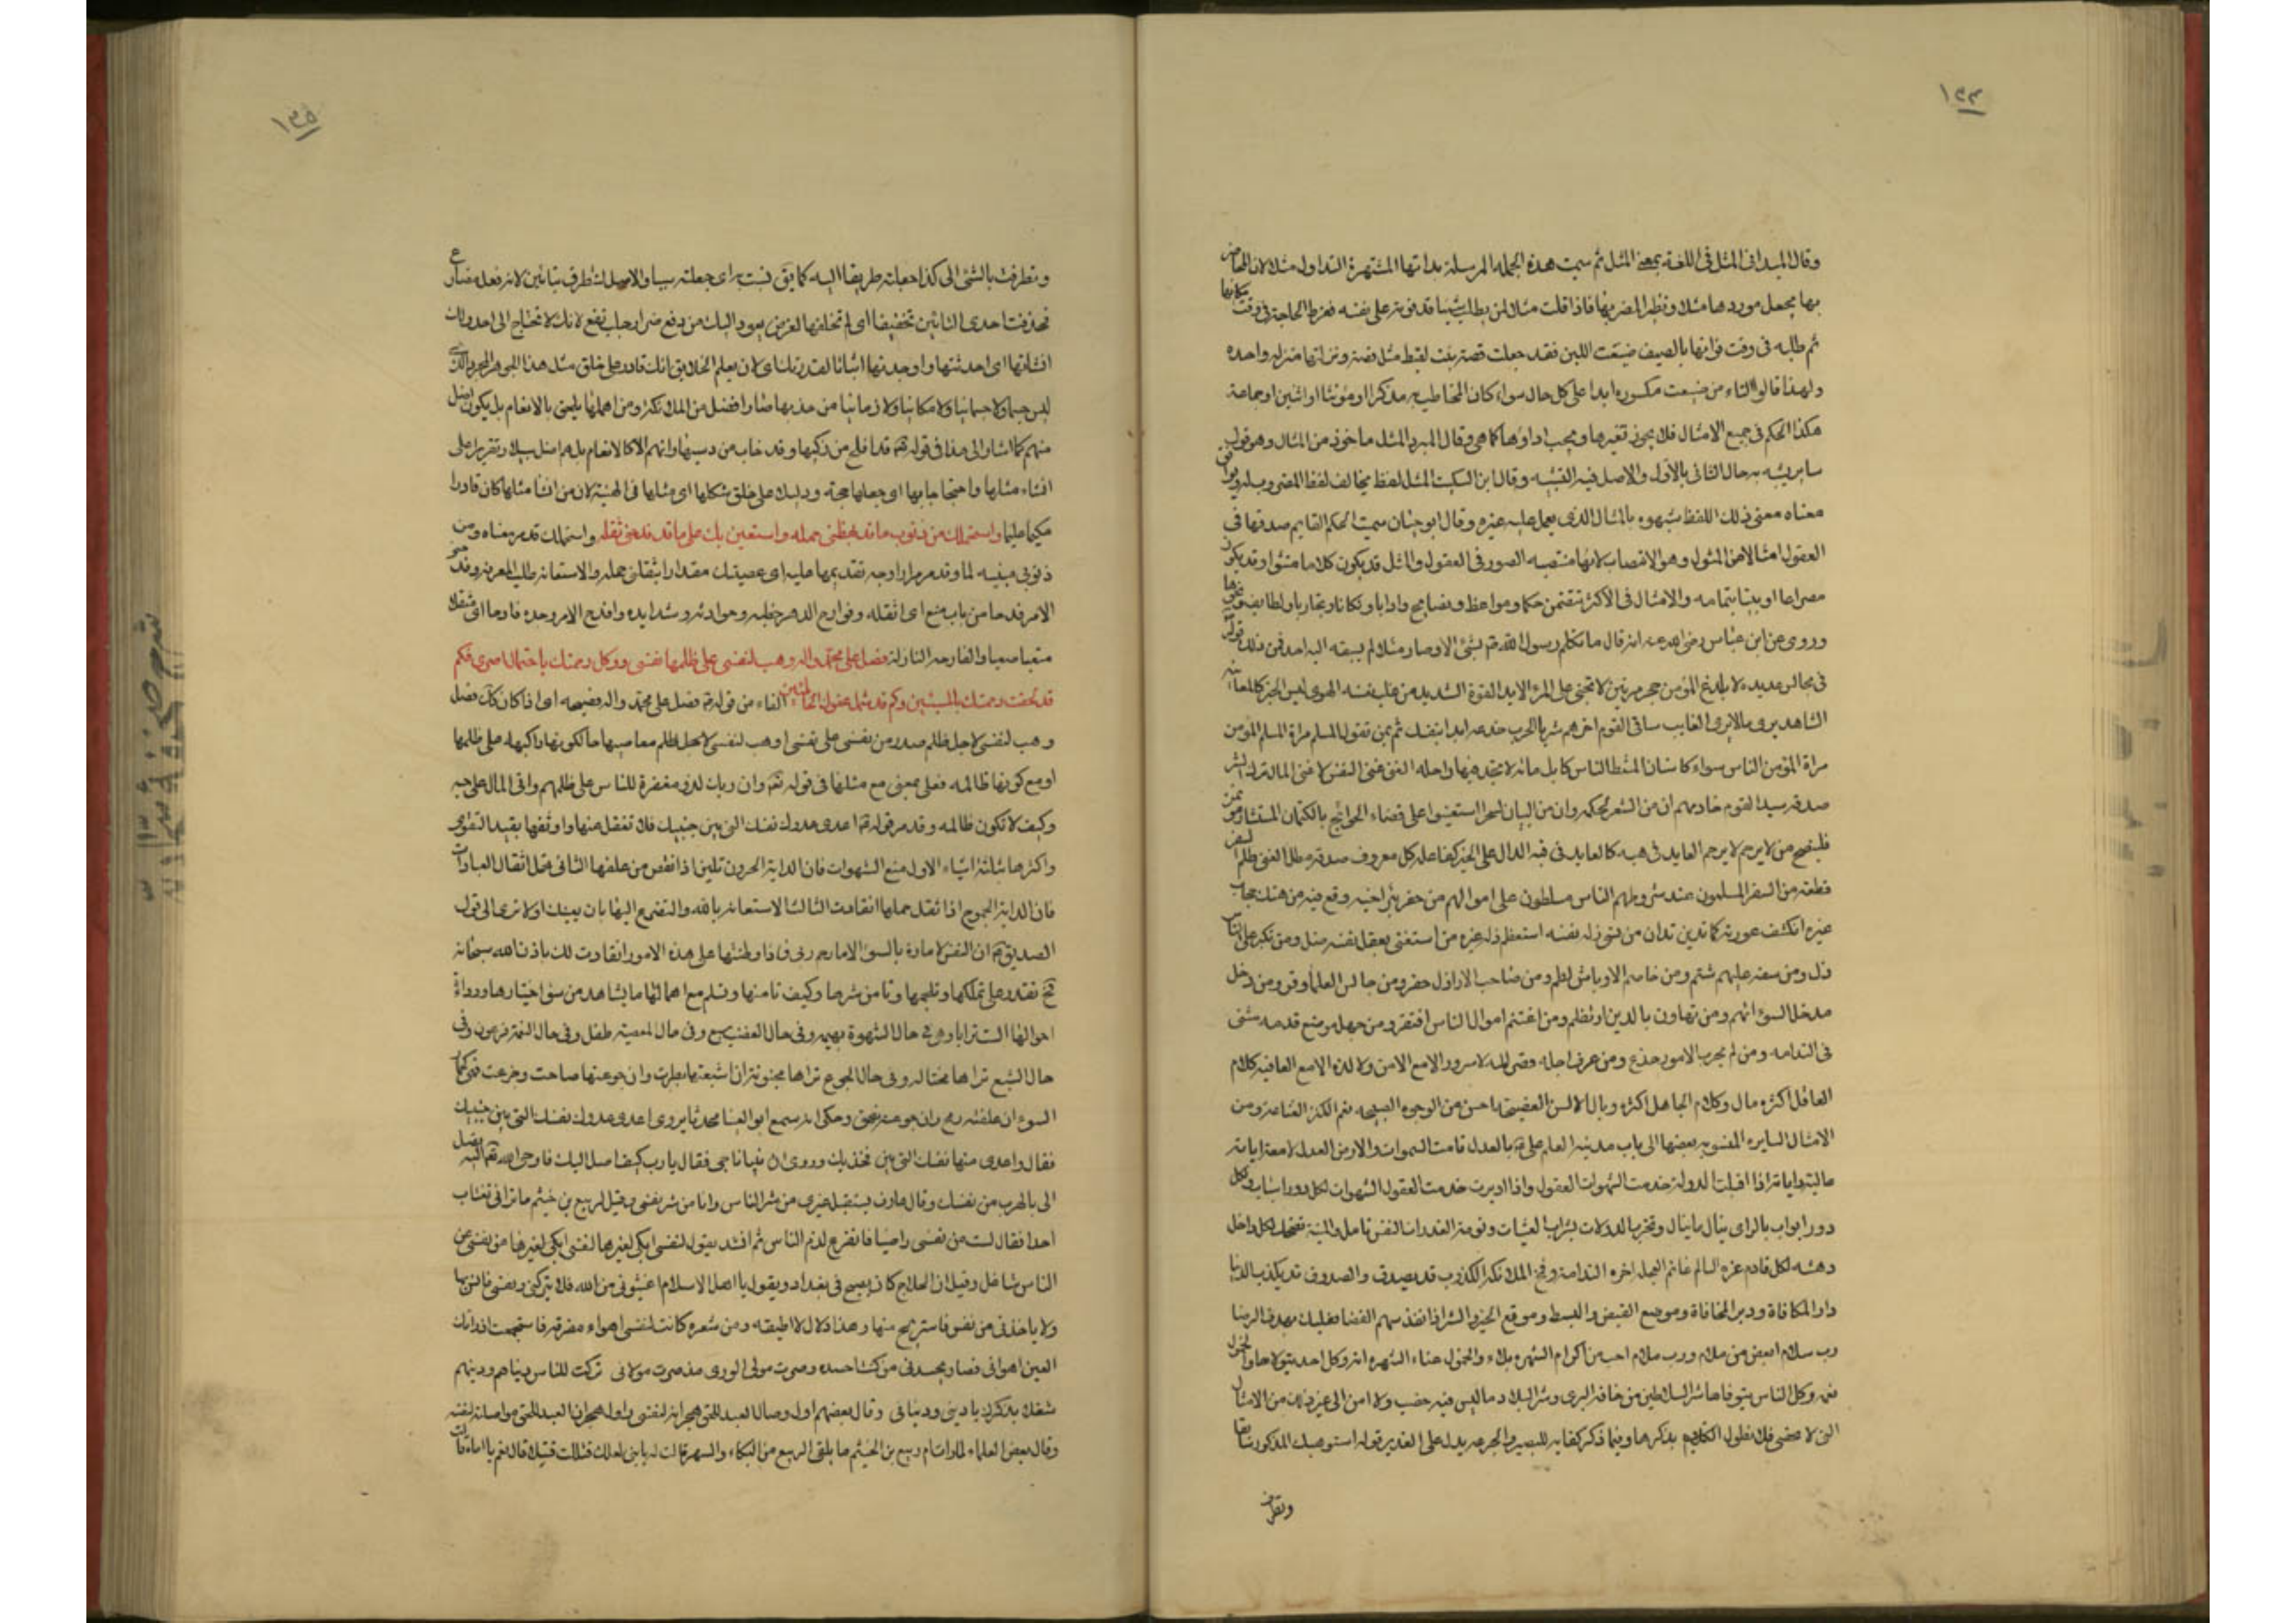 ١٣٤
وقال الميدانى المثل فى اللغة بمعنى المثل ثم سميت هذه الجملة المرسلة بذاتها المشتهرة التداول مثلا لان المحاضر
بها يجعل موردها مثلا ونظير المضربها فاذا قلت مثلا لمن يطلب شيئا قد فوته على نفسه فرط الحاجة فى وقت امكانها
ثم طلبه فى وقت فواتها بالصيف ضيعت اللبن فقد جعلت قصة بنت لقيط مثل قصته ونزلتها منزلة واحدة
ولهذا قالوا التاء من ضيعت مكسورة ابدا على كل حال سواء كان المخاطب به مذكرا او مؤنثا او اثنين او جماعة
هكذا الحكم فى جميع الامثال فلا يجوز تغيرها ويجب اداؤها كما هى وقال المبرد المثل ماخوذ من المثال وهو قول
ساير يشبه به حال الثانى بالاول والاصل فيه التشبيه وقال ابن السكيت المثل لفظ يخالف لفظ المضروب له ويوافق
معناه معنى ذلك اللفظ شبهوه بالمثال الذى يعمل عليه غيره وقال ابو حيان سميت الحكم القايم صدقها فى
العقول امثالا من المثول وهو الانتصاب لانها منتصبه الصور فى العقول والمثل قد يكون كلاما منثورا وقد يكون
مصراعا او بيتا بتمامه والامثال فى الاكثر تتضمن حكما ومواعظ ونصايح وادابا ونكاتا وتجاربا ولطايف ونحوها
وروى عن ابن عباس رضى الله عنه انه قال ما تكلم رسول الله ص بشئ الا وصار مثلا لم يسبقه اليه احد فمن ذلك قوله
فى مجالس عديدة لا يلدغ المؤمن من جحر مرتين لا تجنى على المرء الا يد القوة الشديد من غلب نفسه الهوى ليس الخبر كالمعاينة
الشاهد يرى ما لا يرى الغايب ساقى القوم اخرهم شربا الحرب خدعه ابدا بنفسك ثم بمن تعول المسلم مرآة المسلم المؤمن
مرآة المؤمن الناس سواء كاسنان المشط الناس كابل مائه لا تجد فيها راحله الغنى غنى النفس لا غنى المال ترك الشر
صدقة سيد القوم خادمهم ان من الشعر لحكمه وان من البيان لسحرا استعينوا على قضاء الحوائج بالكتمان المستشار مؤتمن
من لا يرحم لا يرحم العايد فى هبه كالعايد فى قيه الدال على الخير كفاعله كل معروف صدقة مطل الغنى ظلم السفر
قطعة من السقر المسلمون عند شروطهم الناس مسلطون على اموالهم من حفر بئرا لاخيه وقع فيه من هتك حجاب
غيره انكشف عورته كما تدين تدان من نسى زلة نفسه استعظم زلة غيره من استغنى بعقل نفسه ضل ومن تكبر على الناس
ذل ومن سفه عليهم شتم ومن خاصم الاوباش ظلم ومن صاحب الاراذل حقر ومن جالس العلماء وقر ومن دخل
مدخل السوء اتهم ومن تهاون بالدين ارتطم ومن اغتنم اموال الناس افتقر ومن جهل موضع قدمه مشى
فى الندامه ومن لم يجرب الامور خدع ومن عرف اجله قصر امله لا سرور الا مع الامن ولا لذة الا مع العافيه كلام
العاقل اكثره مال وكلام الجاهل اكثره وبال الالسن الفصيحة احسن من الوجوه الصبيحه نعم الكنز القناعة ومن
الامثال السايره المنسوبه بعضها الى باب مدينة العلم على ع بالعدل قامت السموات والارض العدل
اذا اقبلت الدولة خدمت الشهوات العقول واذا ادبرت خدمت العقول الشهوات لكل دور اسباب ولكل
دور ابواب بالراى ينال ما ينال لكل داخل
دهشه لكل قادم عزة الندامة الكذوب قد يصدق والصدوق قد يكذب الدنيا
دار المكافاة وموضع القبض والبسط وموقع الخير والشر اذا نفذ سهم القضا فعليك بهدف الرضا
رب سلام ابغض من ملام ورب ملام احب من اكرام الشهره بلاء والخمول هناء
شر السلاطين من خافه البرى وشر البلاد ما ليس فيه خصب ولا امن الى غير ذلك من الامثال
التى لا تحصى فلا نطول الكلام بذكرها وفيما ذكر كفاية للبصير قوله استوهبك المذكور سابقا
وتطرق
١٣٥
وتطرقت بالشئ الى كذا جعلته طريقا اليه كما يق تسبب به اى جعلته سببا والاصل تتطرق بتائين لانه فعل مضارع
فحذفت احدى التائين تخفيفا اى لم تخلقها لغرض يعود اليك من دفع ضر او جلب نفع لانك لا تحتاج الى احد ولكن
انشاتها اى احدثتها واوجدتها اثباتا لقدرتك اى لان يعلم الخلايق انك قادر على خلق مثل هذا الجوهر المجرد الذى
ليس جسما ولا جسمانيا ولا مكانيا ولا زمانيا من هذبها صار افضل من الملائكة ومن اهملها يلحق بالانعام بل يكون اضل
منهم كما اشار الى هذا فى قوله تع قد افلح من زكيها وقد خاب من دسيها وانهم الا كالانعام بل هم اضل سبيلا وتقريرا على
انشاء مثلها واحتجاجا بها اى جعلها حجة ودليلا على خلق شكلها اى مثلها فى الهيئة لان من انشا مثلها كان قادرا
حكيما عليما واستحملك من ذنوبى ما قد بهظنى حمله واستعين بك على ما قد فدحنى ثقله واستحملك قد مر معناه ومن
ذنوبى مبينه لما وقد مر مرارا وجه تقديمها عليه اى عصيتك مقدارا اثقلنى حمله والاستعانة طلب المعونة وفدحنى
الامر فدحا من باب منع اى اثقله وفوادح الدهر خطبه وحوادثه وشدايده وافدح الامر وجده فادحا اى مثقلا
متعبا صعبا والفادحه النازلة فصل على محمد واله وهب لنفسى على ظلمها نفسى ووكل رحمتك باحتمال اصرى فكم
قد لحقت رحمتك بالمسيئين وكم قد شمل عفوك الظالمين الفاء من قوله ع فصل على محمد واله فصيحه اى اذا كان كك فصل
وهب لنفسى لاجل ظلم صدر من نفسى على نفسى او هب لنفسى لاجل ظلم معاصيها حال كونها راكبه على ظلمها
او مع كونها ظالمه فعلى بمعنى مع مثلها فى قوله تع وان ربك لذو مغفرة للناس على ظلمهم واتى المال على حبه
وكيف لا تكون ظالمه وقد مر قوله ع اعدى عدوك نفسك التى بين جنبيك فلا تغفل عنها واوثقها بقيد التقوى
واكثرها بثلثة اشياء الاول منع الشهوات فان الدابة الحرون تلين اذا نقص من علفها الثانى حمل اثقال العبادات
فان الدابة الجموح اذا ثقل حملها انقادت الثالث الاستعانه بالله والتضرع اليه بان يعينك اولا ترى الى قول
الصديق ع ان النفس لامارة بالسوء الا ما رحم ربى فاذا وطنتها على هذه الامور انقادت لك باذن الله سبحانه
فح تقدر على تملكها وتلجمها وتامن شرها وكيف تامنها وتسلم مع اهمالها ما يشاهد من سوء اختيارها ورداءة
احوالها الست تراها وهى فى حال الشهوة بهيمه وفى حال الغضب سبع وفى حال المعصية طفل وفى حال النعمة فرعون وفى
حال الشبع تراها مختاله وفى حال الجوع تراها مجنونة ان اشبعتها بطرت وان جوعتها صاحت وجزعت فهى كحمار
السوء ان علفته رمح وان جوعته نهق وحكى انه سمع ابو العينا محدثا يروى اعدى عدوك نفسك التى بين جنبيك
فقال واعدى منها نفسك التى بين فخذيك وروى ان نبيا ناجى فقال يارب كيف اصل اليك فاوحى الله تع اليه تصل
الى بالهرب من نفسك وقال عارف يستقيل غيرى من شر الناس وانا من شر نفسى وقيل لربيع بن خيثم ما نراك تغتاب
احدا فقال لست عن نفسى راضيا فاتفرغ لذم الناس ثم انشد يقول لنفسى ابكى لست ابكى لغيرها لنفسى عن
الناس شاغل وقيل ان الحلاج كان يصيح فى بغداد ويقول يا اهل الاسلام اغيثونى من الله فلا يتركنى ونفسى فانس بها
ولا ياخذنى من نفسى فاستريح منها وهذا دلال لا اطيقه ومن شعره كانت لنفسى اهواء مفرقة فاستجمعت اذ راتك
العين اهوائى فصار يحسدنى من كنت احسده وصرت مولى الورى مذ صرت مولائى تركت للناس دنياهم ودينهم
شغلا بذكرك يا دينى ودنيائى وقال بعضهم اول وصال العبد للحق هجرانه لنفسه واول هجران العبد للحق مواصلة لنفسه
وقال بعض العلماء لما رات ام ربيع بن الخيثم ما يلقى الربيع من البكاء والسهر قالت له يا بنى لعلك قتلت قتيلا قال نعم يا اماه قالت